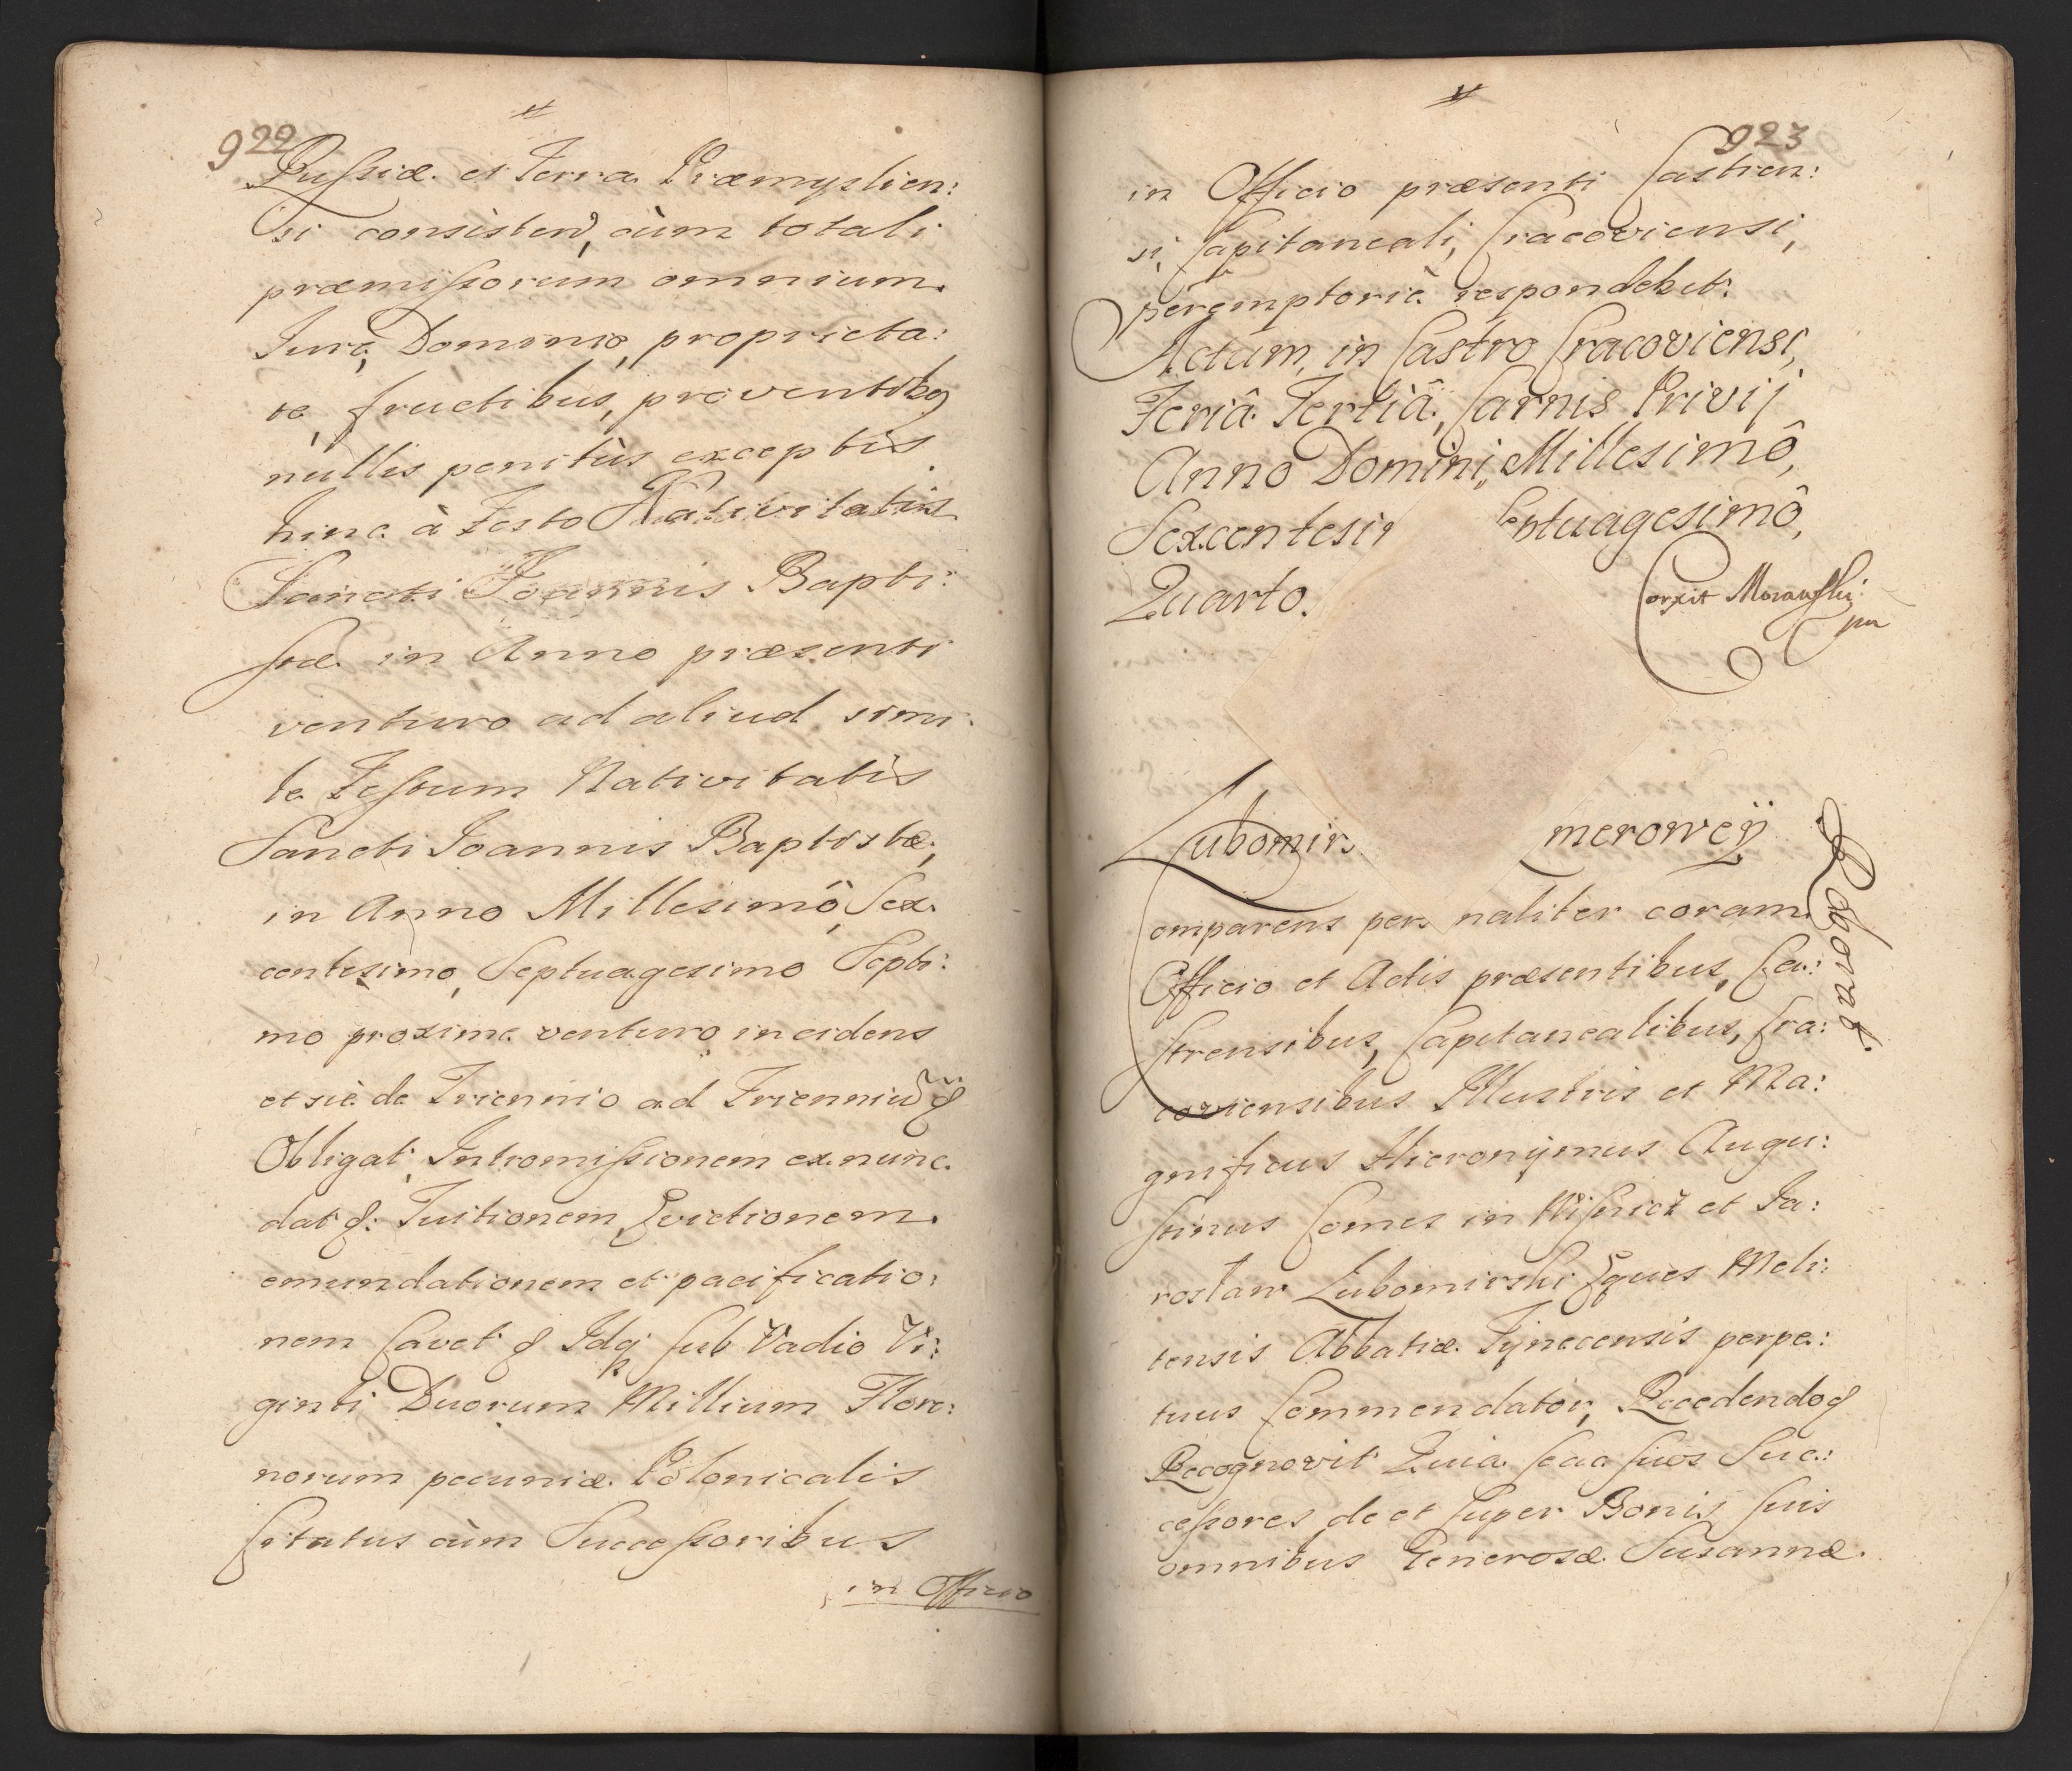 922
Russiæ et Terra Præmyslien:
si consisten, cùm totali
præmissorum omnium
Jurè, Dominio, proprieta:
te, fructibus, proventibq
nullis penitùs exceptis
hinc à Festo Nativitatis
Sancti Joannis Bapti:
stæ in Anno præsenti
venturo ad aliud simi:
le Festum Nativitatis
Sancti Joannis Baptistæ,
in Anno Millesimô, Sex:
centesimo, Septuagesimo Septi:
mo proxime venturo incidens
et sic de Triennio ad Trienniũ &
Obligat, Intromissionem ex nunc
dat &: Tuitionem Evictionem
emundationem et pacificatio:
nem Cavet & Idq sub Vadio Vi:
ginti Duorum Millium Flore:
norum pecuniæ Polonicalis
Citatus cùm Successoribus
in Officio
923
in Officio præsenti Castren:
si, Capitaneali, Cracoviensi,
peremptoriè respondebit.
Actum, in Castro Cracoviensi,
Feriâ Tertiâ, Carnis Privij
Anno Domini, Millesimô,
Sexcentesi ptuagesimô,
Quarto.
Corxit Morawski
mp
Lubomirs merowey
Roborat.
Comparens pers naliter coram
Officio et Actis præsentibus, Ca:
strensibus, Capitanealibus, Cra:
coviensibus Illustris et Ma:
gnificus Hieronÿmus Augu:
stinus Comes in Wisnicz et Ja:
roslaw Lubomirski Eques Meli:
tensis Abbatiæ Tÿnecensis perpe:
tuus Commendator, Recedendo &
Recognovit Quia se ac suos Suc:
cessores de et super Bonis suis
omnibus Generosæ Susannæ